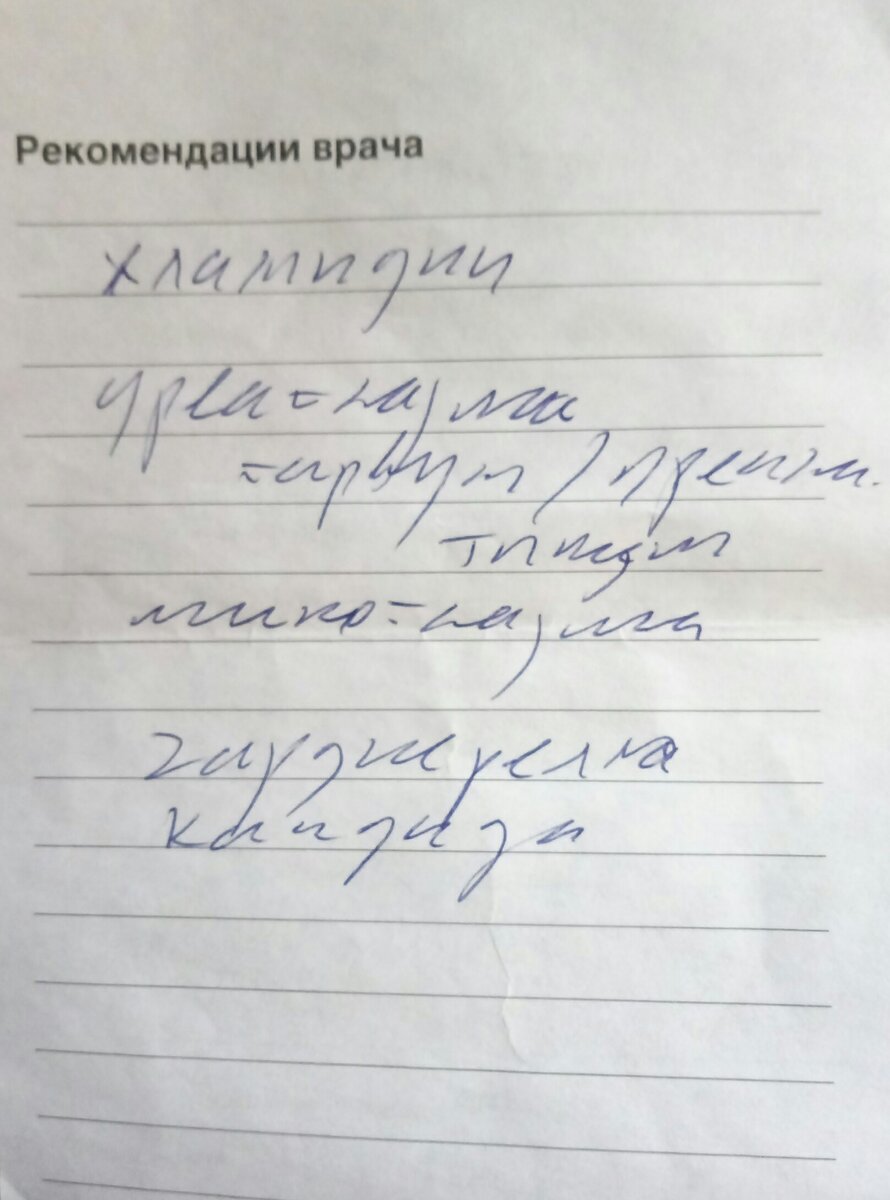 Рекомендации врача
хламидии
уреа=плазма
=парвум /
типидм
мико=плазма
гарднерелла
кандида